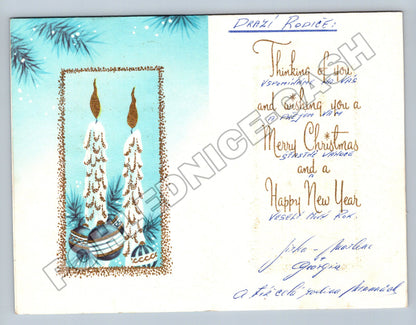 DRAZÍ RODIČE:
Thinking of you
VSPOMÍNÁM NA VÁS
and wishing you a
A PŘEJEM VÁM
Merry Christmas
ŠŤASTNÉ VÁNOCE
and a
A
Happy New Year
VESELÝ NOVÝ ROK.
Georgina
A
celá rodina
POHLEDNICE-CASH